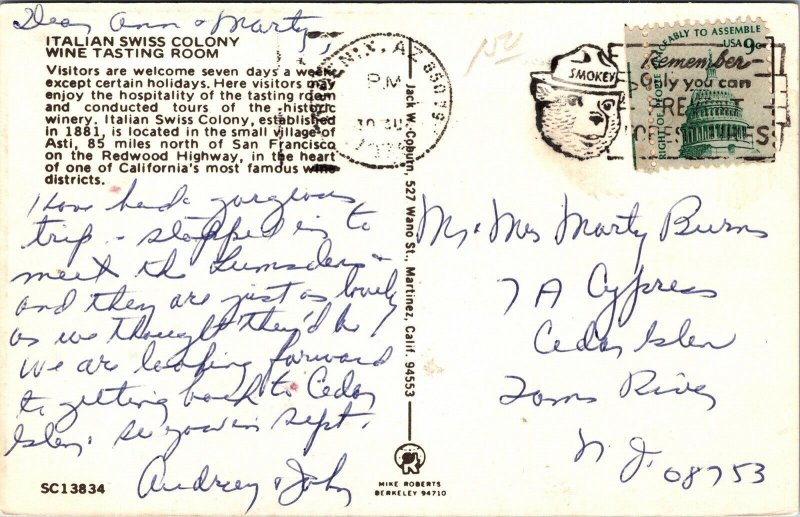 Dear Ann & Marty,
ITALIAN SWISS COLONY
WINE TASTING ROOM
Visitors are welcome seven days a week
except certain holidays. Here visitors may
enjoy the hospitality of the tasting room
and conducted tours of the historic
winery. Italian Swiss Colony, established
in 1881, is located in the small village of
Asti, 85 miles north of San Francisco
on the Redwood Highway, in the heart
of one of California's most famous wine
districts.
Have had a gorgeous
trip - stopped in to
meet the Lumsdens -
and they are just as lovely
as we thought they'd be!
We are looking forward
to getting back to Cedar
Islen. See you in Sept.
Audrey & John
SC13834
Jack W. Coburn, 527 Wano St., Martinez, Calif. 94553
MIKE ROBERTS
BERKELEY 94710
PHOENIX, AZ 850
PM
30
150
SMOKEY
Remember-
Only you can
PREVENT
FOREST FIRES
RIGHT OF PEOPLE PEACEABLY TO ASSEMBLE
USA 9c
Mr & Mrs Marty Burns
7 A Cypress
Cedar Islen
Toms River
N.J. 08753